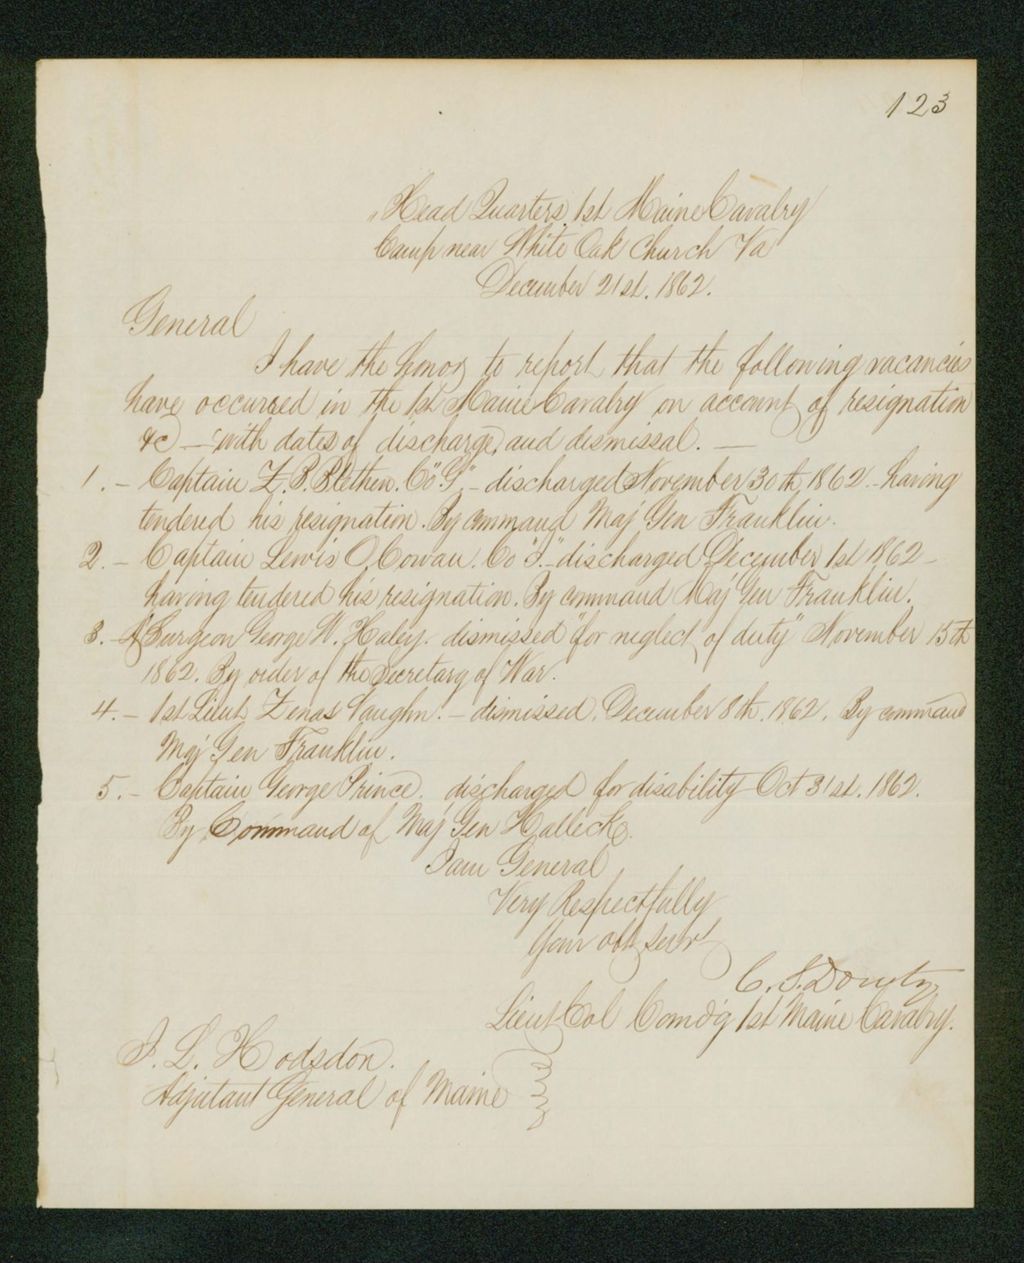 123
Head Quarters 1st Maine Cavalry
Camp near White Oak Church Va
December 21st. 1862.
General
I have the honor to report that the following vacancies
have occurred in the 1st Maine Cavalry on account of resignation
&c — with dates of discharge, and dismissal. —
1. — Captain Z. B. Blethen. Co "G" — discharged November 30th, 1862 - having
tendered his resignation. By command Maj Gen Franklin.
2. — Captain Lewis O. Cowan. Co — discharged December 1st 1862 —
having tendered his resignation. By command Maj Gen Franklin.
3. — Surgeon George W. Haley. dismissed "for neglect of duty" November 15th
1862. By order of the Secretary of War.
4. — 1st Lieut Zenas Vaughn. — dismissed. December 8th. 1862. By command
Maj Gen Franklin.
5. — Captain George Prince. discharged for disability Oct 31st. 1862.
By Command of Maj Gen Halleck.
I am General
Very Respectfully
Your obt servt
C. S. Douty
Lieut Col Comd'g 1st Maine Cavalry.
J. L. Hodsdon.
Adjutant General of Maine